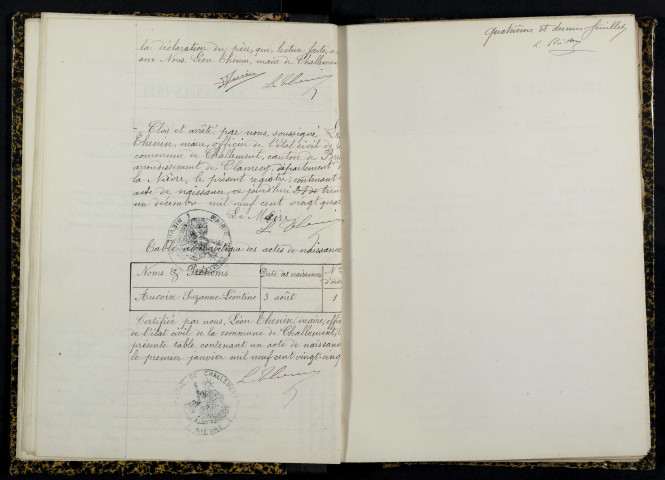 la déclaration du père, que lecture faite, a
avec Nous. Léon Thenin, maire de Challement
L Thenin
Clos et arrêté par nous, soussigné
Thenin, maire, officier de l'état civil de la
commune de Challement, canton de Br
arrondissement de Clamecy, département
la Nièvre, le présent registre, contenant
acte de naissance, ce jourd'hui trent
un décembre mil neuf cent vingt quat
Le Maire,
L Thenin
Table alphabétique des actes de naissance
Noms & Prénoms Date des naissances N°
d'ordre
Aucoin Suzanne-Léontine 3 août 1
Certifiée par nous, Léon Thenin, maire, offi
de l'état civil de la commune de Challement,
présente table, contenant un acte de naissan
le premier janvier mil neuf cent vingt-cinq
L Thenin
MAIRIE DE CHALLEMENT
NIÈVRE
quatrième et dernier feuillet